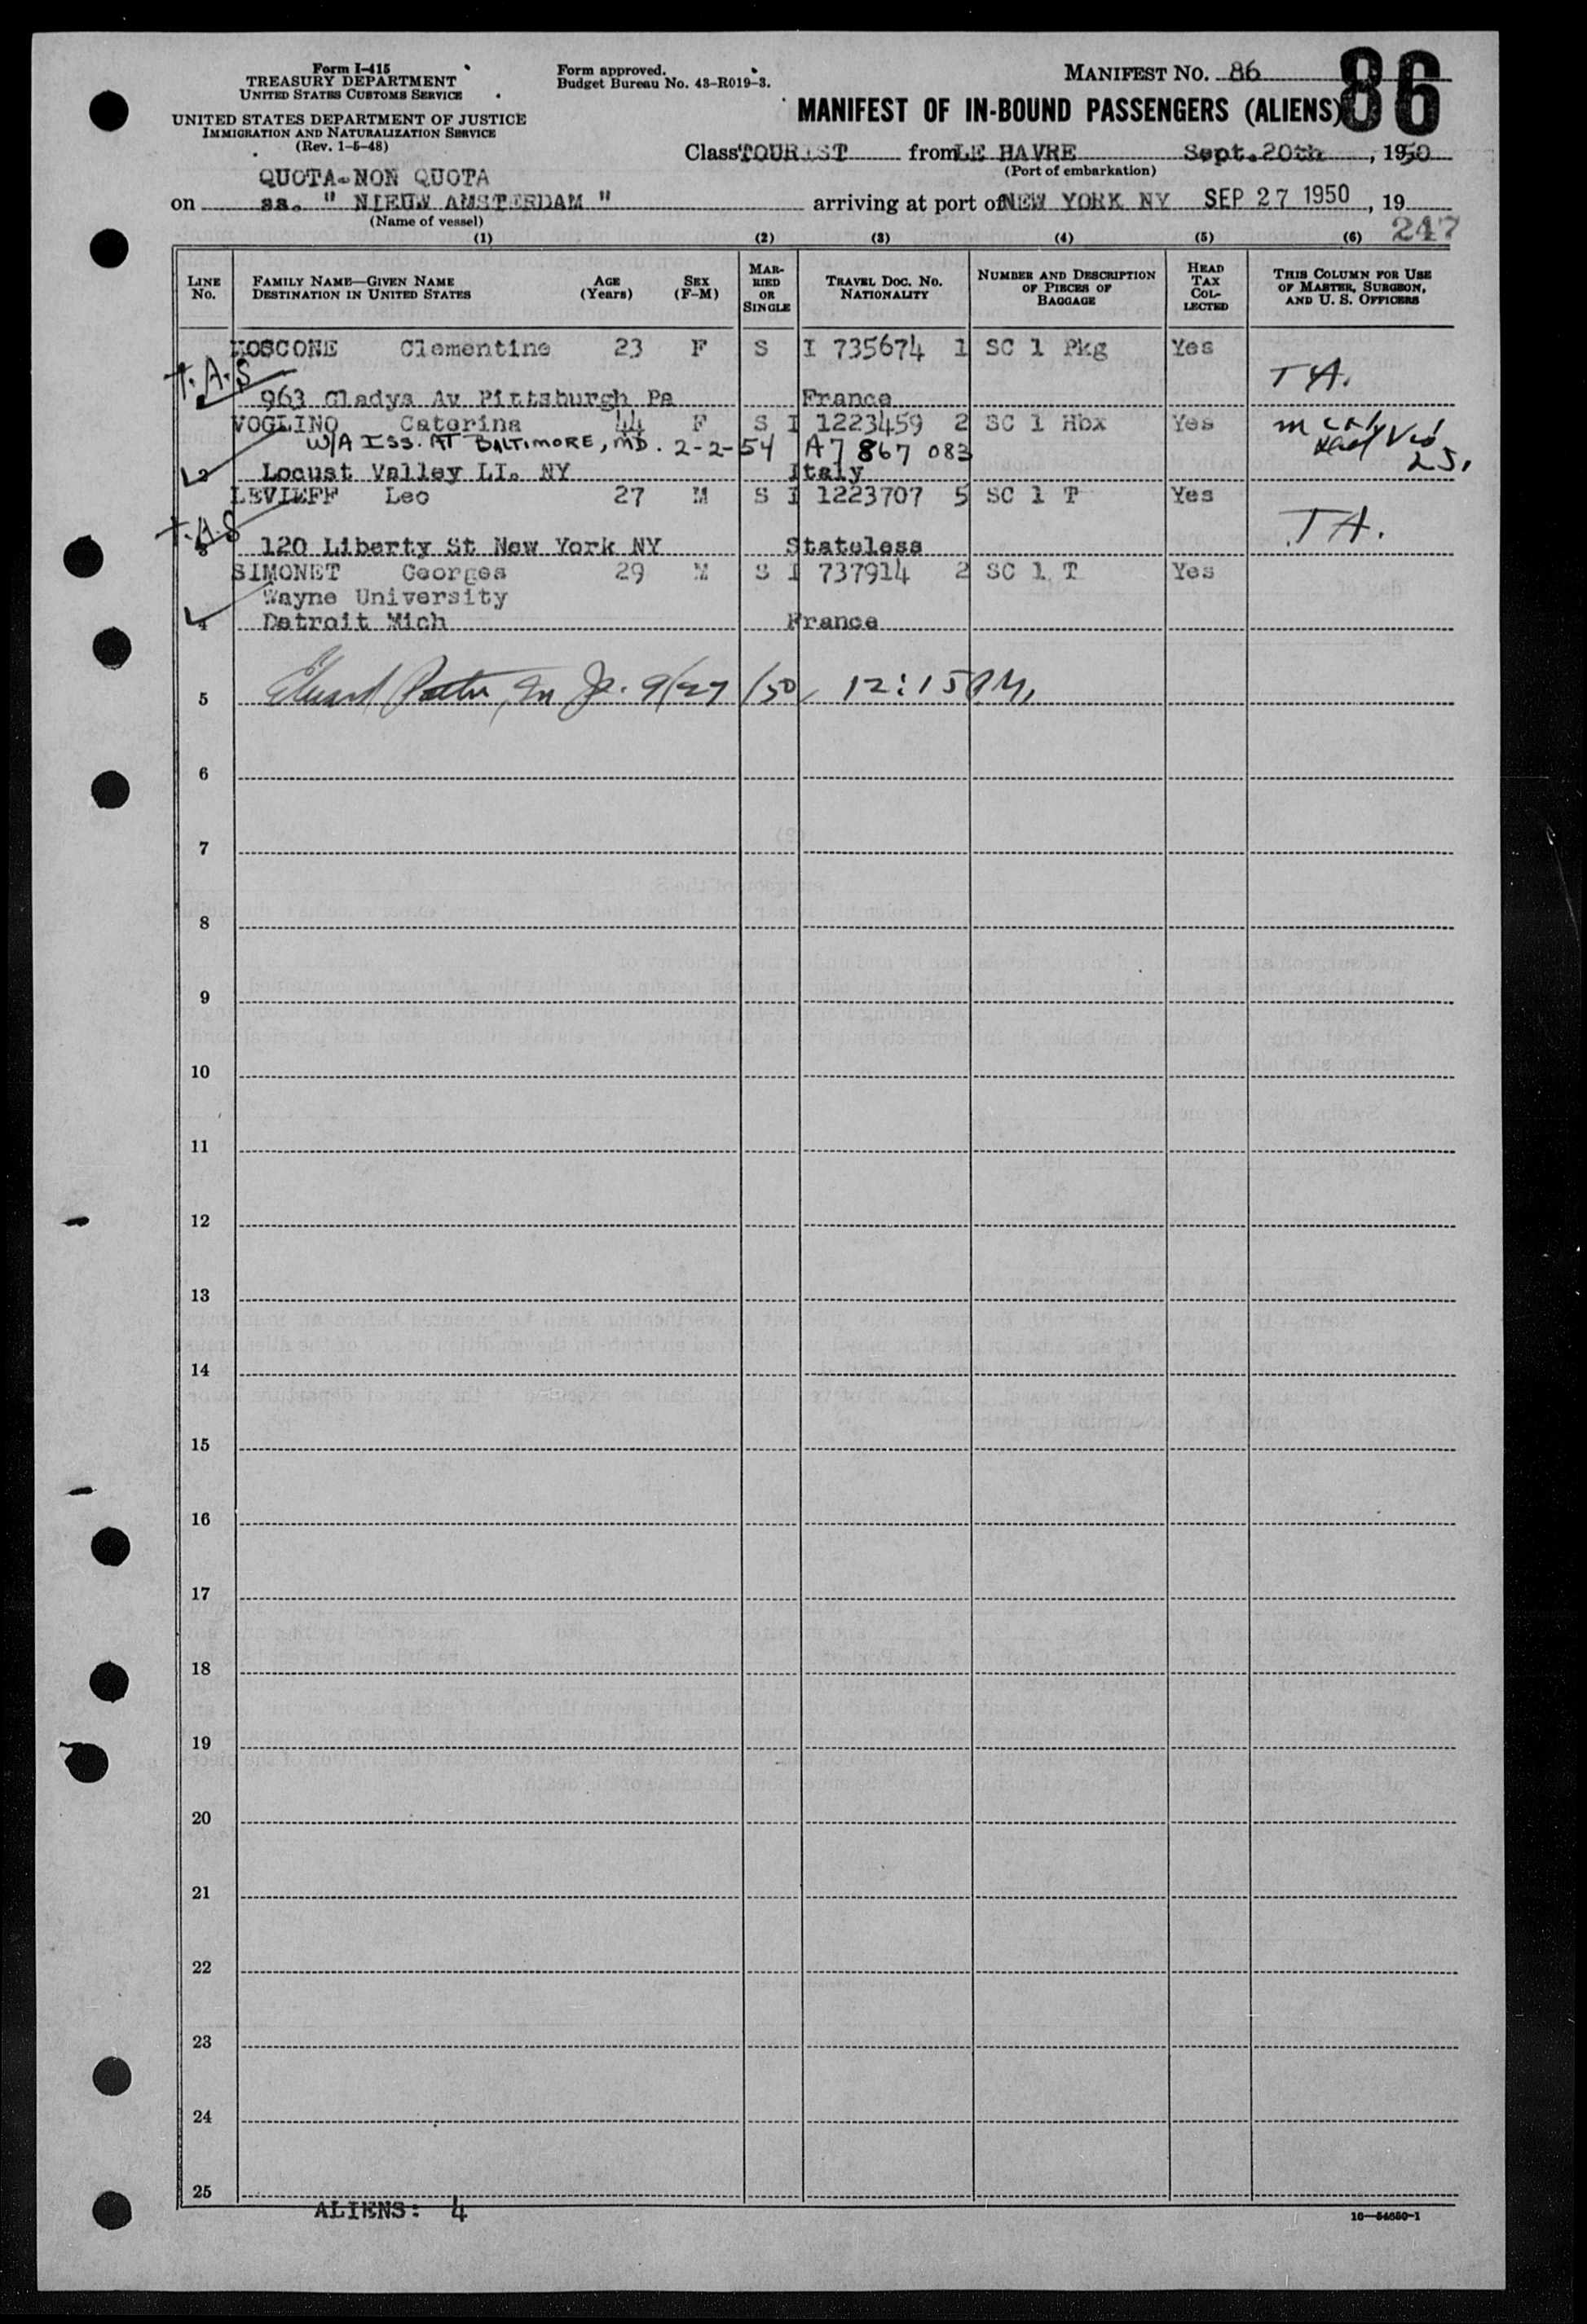 Form I-415
TREASURY DEPARTMENT
UNITED STATES CUSTOMS SERVICE
UNITED STATES DEPARTMENT OF JUSTICE
IMMIGRATION AND NATURALIZATION SERVICE
(Rev. 1-5-48)
Form approved.
Budget Bureau No. 43-R019-3.
MANIFEST NO. 86
86
MANIFEST OF IN-BOUND PASSENGERS (ALIENS)
Class TOURIST from LE HAVRE Sept. 20th, 1950
(Port of embarkation)
QUOTA-NON QUOTA
on ss. " NIEUW AMSTERDAM " arriving at port of NEW YORK NY SEP 27 1950, 19
(Name of vessel)
247
(1) (2) (3) (4) (5) (6)
LINE No. FAMILY NAME—GIVEN NAME DESTINATION IN UNITED STATES AGE (Years) SEX (F-M) MARRIED OR SINGLE TRAVEL DOC. NO. NATIONALITY NUMBER AND DESCRIPTION OF PIECES OF BAGGAGE HEAD TAX COLLECTED THIS COLUMN FOR USE OF MASTER, SURGEON, AND U. S. OFFICERS
Clementine 23 F S I 735674 1 SC 1 Pkg Yes
T.A.S TA.
963 Gladys Av Pittsburgh Pa France
VOGLINO Caterina 44 F S I 1223459 2 SC 1 Hbx Yes
W/A ISS. AT BALTIMORE, MD. 2-2-54 A7 867 083
Locust Valley LI. NY Italy
LEVIEFF Leo 27 M S I 1223707 5 SC 1 T Yes
T.A.S TA.
3 120 Liberty St New York NY Stateless
SIMONET Georges 29 M S I 737914 2 SC 1 T Yes
Wayne University
4 Detroit Mich France
5 9/27/50, 12:15 PM,
6
7
8
9
10
11
12
13
14
15
16
17
18
19
20
21
22
23
24
25
ALIENS: 4